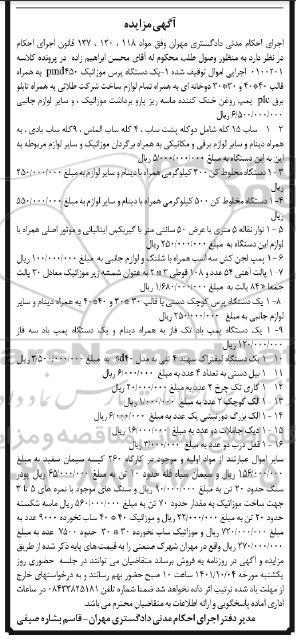 آگهی مزایده
اجرای احکام مدنی دادگستری مهران وفق مواد ۱۱۸ ، ۱۲۰ ، ۱۳۷ قانون اجرای احکام
در نظر دارد به منظور وصول طلب محکوم له آقای محسن ابراهیم زاده در پرونده کلاسه
۰۱۰۰۲۰۱ اجرایی اموال توقیف شده ۱-یک دستگاه پرس موزائیک pmd۴۵۰ به همراه
قالب ۴۰*۴۰ و ۳۰*۳۰ دوخانه ای به همراه تمام لوازم ساخت شرکت طلائی به همراه تابلو
برق plc پمپ روغن خنک کننده ماسه ریز پارو برداشت موزائیک ، و سایر لوازم جانبی
۶/۵۰۰/۰۰۰/۰۰۰ ریال
۲-۱ ساب ۱۵ کله شامل دوکله پشت ساب ، ۴ کله ساب الماس ، ۹کله ساب بادی ، به
همراه دینام و سایر لوازم برقی و مکانیکی به همراه برگردان موزائیک و سایر لوازم مربوطه به
این به این دستگاه به مبلغ ۵/۰۰۰/۰۰۰/۰۰۰ ریال
۳-۱ دستگاه مخلوط کن ۲۰۰ کیلوگرمی همراه با دینام و سایر لوازم به مبلغ ۲۵۰/۰۰۰/۰۰۰
ریال
۴-۱ دستگاه مخلوط کن ۵۰۰ کیلوگرمی همراه با دینام و سایر لوازم به مبلغ ۵۵۰/۰۰۰/۰۰۰
ریال
۵-۱ نوار نقاله ۵ متری با عرض ۵۰ سانتی متر با گیربکس ایتالیائی و موتور اصلی همراه با
لوازم این دستگاه به مبلغ ۲۵۰/۰۰۰/۰۰۰ ریال
۶-۱ پمپ لجن کش سه اسب همراه با شلنگ و لوازم جانبی به مبلغ ۱۰۰/۰۰۰/۰۰۰ ریال
۷-۱ پالت آهنی ۵۴ عدد و ۱۰۸ قوطی ۳*۲ به عنوان شمشه زیر موزائیک معادل ۳۰ پالت
جمعا ۸۴ پالت به مبلغ ۱/۶۸۰/۰۰۰/۰۰۰ ریال
۸-۱ یک دستگاه پرس کوچک دستی با قالب ۳۰*۳۰ و ۴۰*۴۰ به همراه دینام و سایر
لوازم جانبی به مبلغ ۲۵۰/۰۰۰/۰۰۰ ریال
۹-۱ یک دستگاه پمپ باد تک فاز به همراه دینام و یک دستگاه پمپ باد سه فاز
۱۲۰/۰۰۰/۰۰۰ ریال
۱۰-۱ یک دستگاه لیفتراک سهند ۴ تنی به مدل sd۴۰ به مبلغ ۳/۵۰۰/۰۰۰/۰۰۰ ریال
۱۱-۱ بیل دستی به تعداد ۴ عدد به مبلغ ۶/۰۰۰/۰۰۰ ریال
۱۲-۱ گاری تک چرخ ۲ عدد به مبلغ ۲۰/۰۰۰/۰۰۰ ریال
۱۳-۱ الک کوچک ۲ عدد به مبلغ ۱/۰۰۰/۰۰۰ ریال
۱۴-۱ الک بزرگ دور نبشی یک عدد به مبلغ ۶/۰۰۰/۰۰۰ ریال
۱۵-۱ دیک حاملات دو عدد به مبلغ ۱۶/۰۰۰/۰۰۰ ریال
۱۶-۱ قفل درب دو عدد به مبلغ ۳/۰۰۰/۰۰۰ ریال
سایر اموال عبارتند از مواد اولیه و موجود در کارگاه ۲۶۰ کیسه سیمان سفید به مبلغ
۱۵۶/۰۰۰/۰۰۰ ریال و سیمان سیاه فله حدود ۱۰ تن به مبلغ ۶۵/۰۰۰/۰۰۰ ریال پودر
سنگ حدود ۲۰ تن به مبلغ ۹۰/۰۰۰/۰۰۰ ریال و سنگ های موجود با نمره های ۵ تا ۳
جهت ساخت موزائیک به مقدار حدود ۷۰ تن به مبلغ ۵۶۰/۰۰۰/۰۰۰ ریال ماسه شکسته
حدود ۲۰ تن به مبلغ ۲۲/۰۰۰/۰۰۰ ریال و موزائیک ۴۰*۴۰ ساب نخورده ۹۰۰۰ عدد به
مبلغ ۷۲۰/۰۰۰/۰۰۰ ریال و موزائیک ساب نخورده ۳۰*۳۰ حدود ۷۵۰۰ عدد به مبلغ
۳۷۰/۰۰۰/۰۰۰ ریال واقع در مهران شهرک صنعتی را به قیمت های پایه ذکر شده از طریق
مزایده و آگهی در روزنامه به فروش برساند متقاضیان می توانند در جلسه حضوری روز
یکشنبه مورخه ۱۴۰۱/۱۰/۰۴ ساعت ۱۰ صبح حضور بهم رسانند و به درخواستهای خارج
از مهلت یاد شده ترتیب اثر داده نخواهد شد ضمنا شماره تلفن ۰۸۴۳۳۸۲۵۱۸۱ در ساعات
اداری آماده پاسخگویی و ارائه اطلاعات به متقاضیان محترم می باشد
مدیر دفتر اجرای احکام مدنی دادگستری مهران-قاسم بشاره صیفی